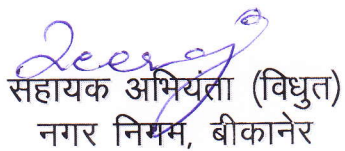 सहायक अभियंता (विधुत)
नगर निगम, बीकानेर